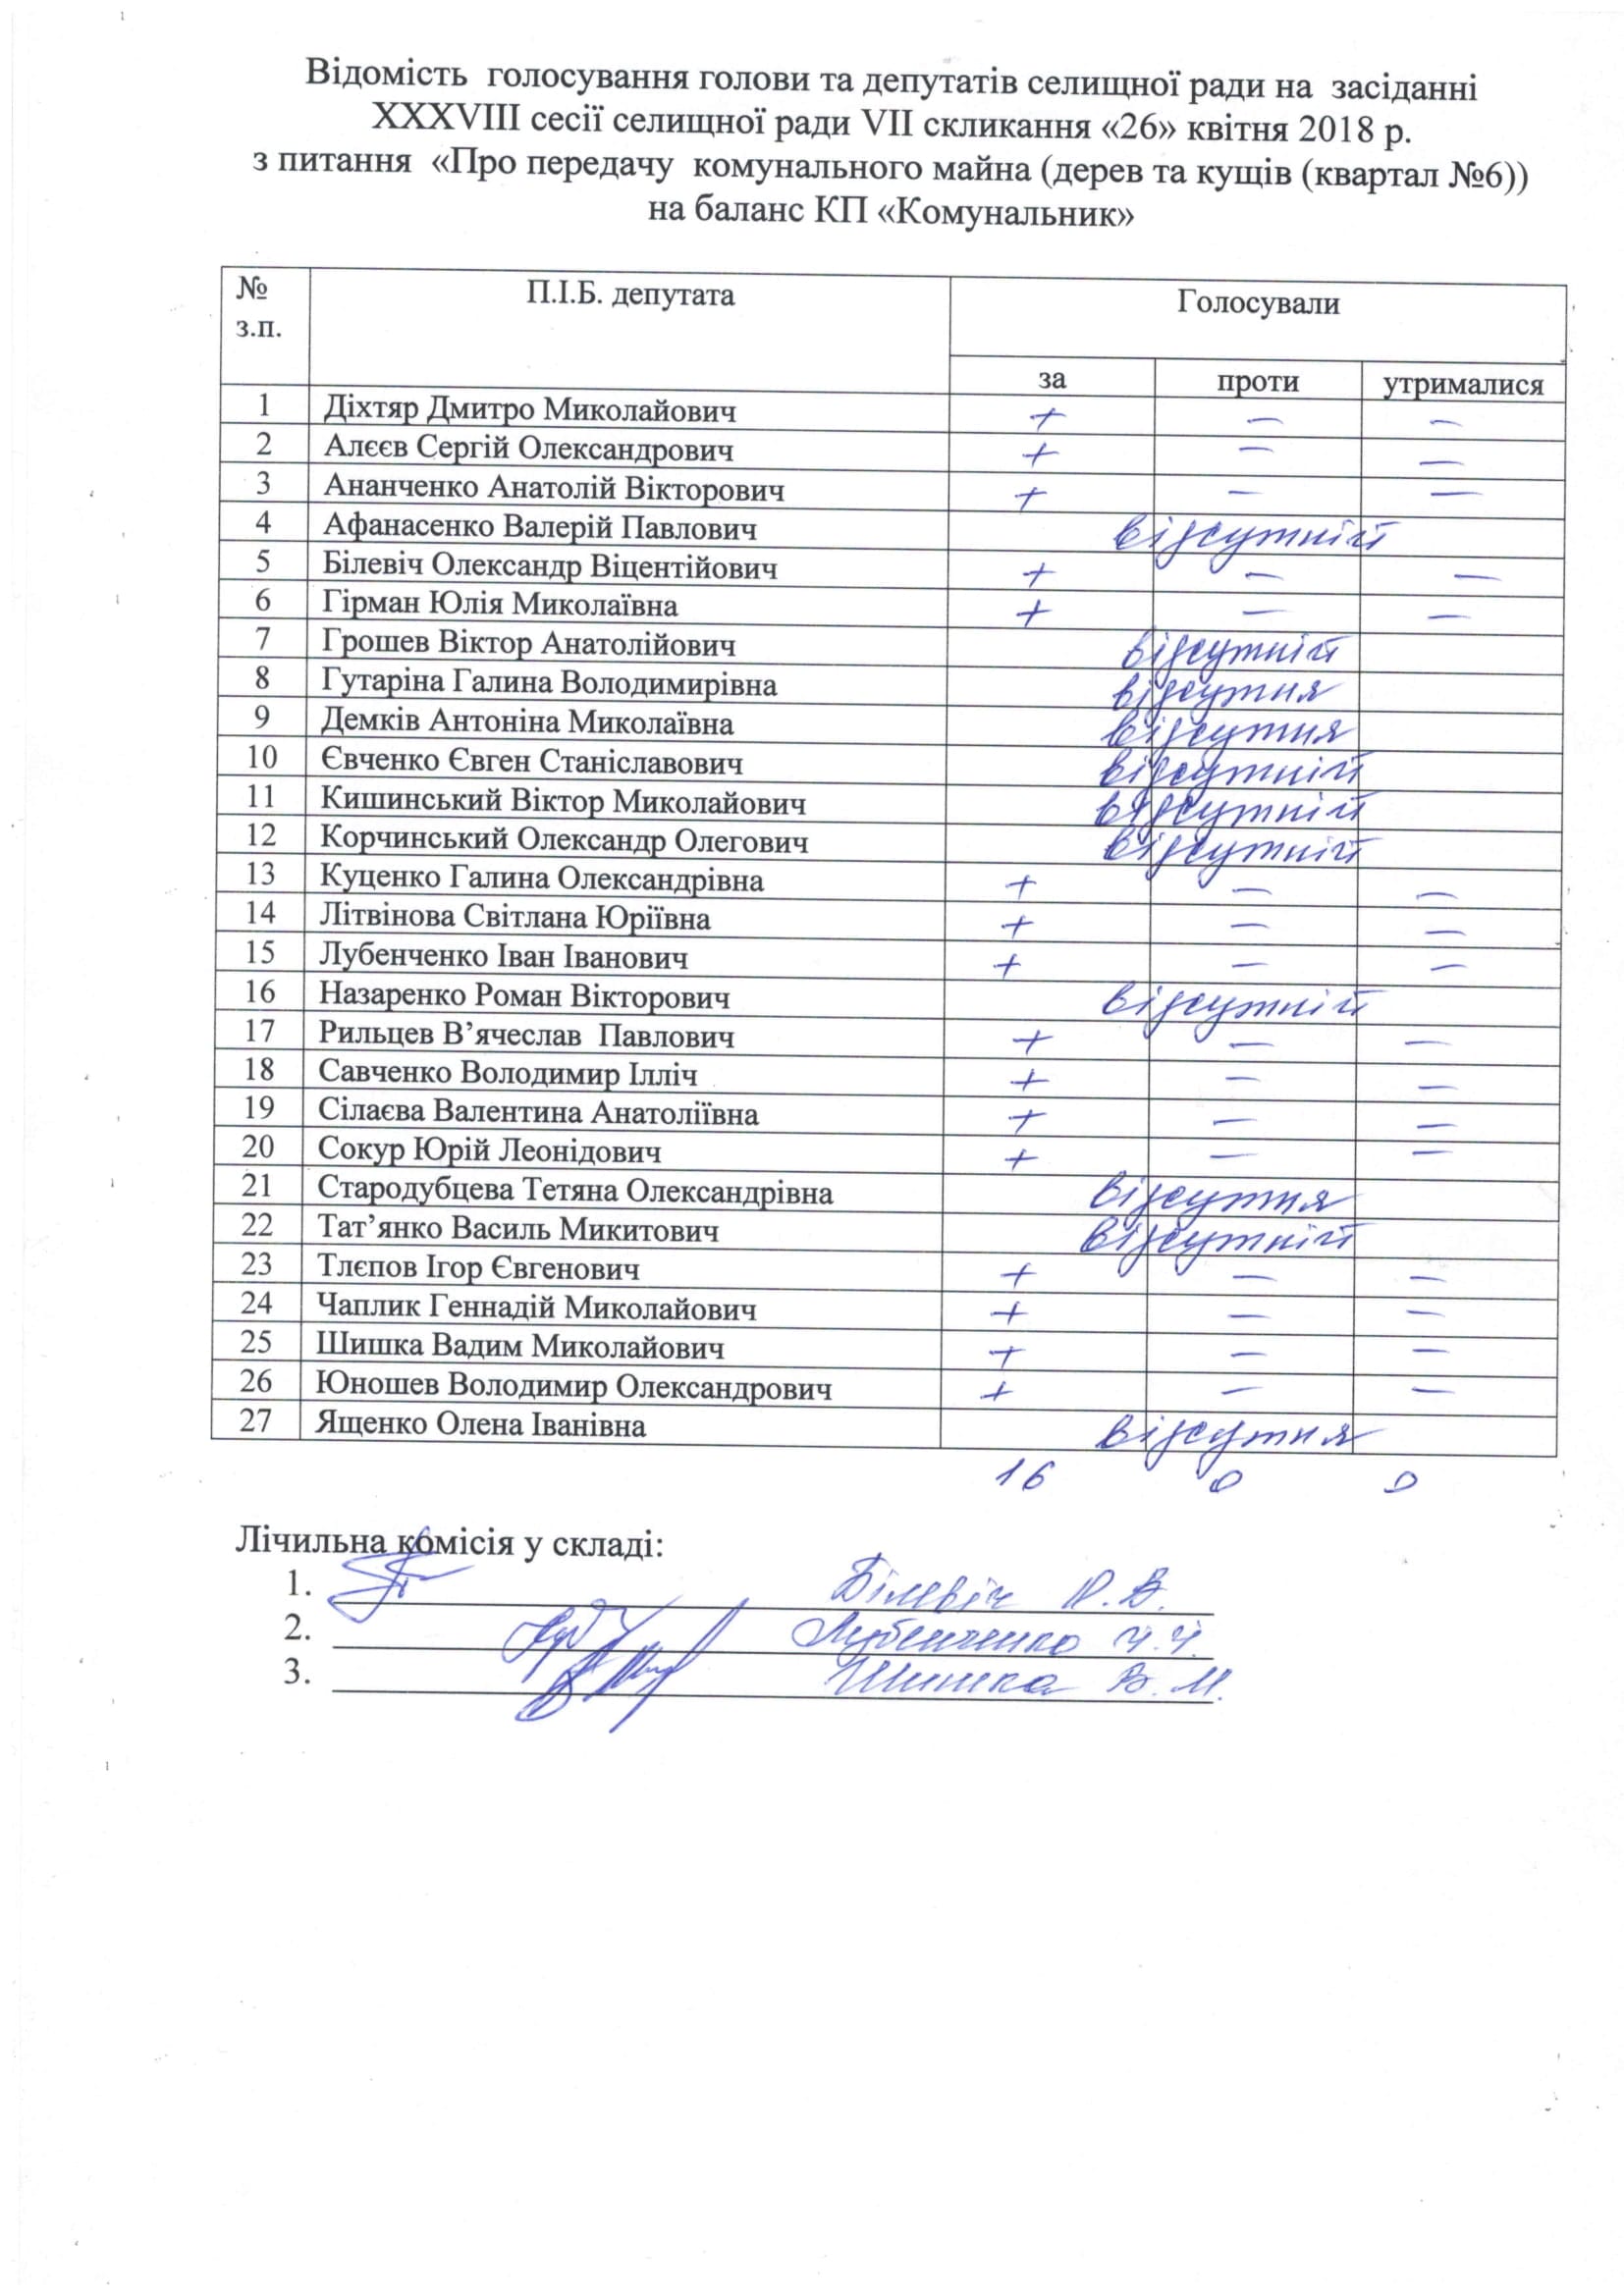 Відомість голосування голови та депутатів селищної ради на засіданні
XXXVIII сесії селищної ради VII скликання «26» квітня 2018 р.
з питання «Про передачу комунального майна (дерев та кущів (квартал №6))
на баланс КП «Комунальник»
№ з.п. П.І.Б. депутата Голосували
за проти утрималися
1 Діхтяр Дмитро Миколайович + – –
2 Алєєв Сергій Олександрович + – –
3 Ананченко Анатолій Вікторович + – –
4 Афанасенко Валерій Павлович відсутній
5 Білевіч Олександр Віцентійович + – –
6 Гірман Юлія Миколаївна + – –
7 Грошев Віктор Анатолійович відсутній
8 Гутаріна Галина Володимирівна відсутня
9 Демків Антоніна Миколаївна відсутня
10 Євченко Євген Станіславович відсутній
11 Кишинський Віктор Миколайович відсутній
12 Корчинський Олександр Олегович відсутній
13 Куценко Галина Олександрівна + – –
14 Літвінова Світлана Юріївна + – –
15 Лубенченко Іван Іванович + – –
16 Назаренко Роман Вікторович відсутній
17 Рильцев В’ячеслав Павлович + – –
18 Савченко Володимир Ілліч + – –
19 Сілаєва Валентина Анатоліївна + – –
20 Сокур Юрій Леонідович + – –
21 Стародубцева Тетяна Олександрівна відсутня
22 Тат’янко Василь Микитович відсутній
23 Тлєпов Ігор Євгенович + – –
24 Чаплик Геннадій Миколайович + – –
25 Шишка Вадим Миколайович + – –
26 Юношев Володимир Олександрович + – –
27 Ященко Олена Іванівна відсутня
16 0 0
Лічильна комісія у складі:
1. Білевіч О.В.
2. Лубенченко І.І.
3. Шишка В.М.